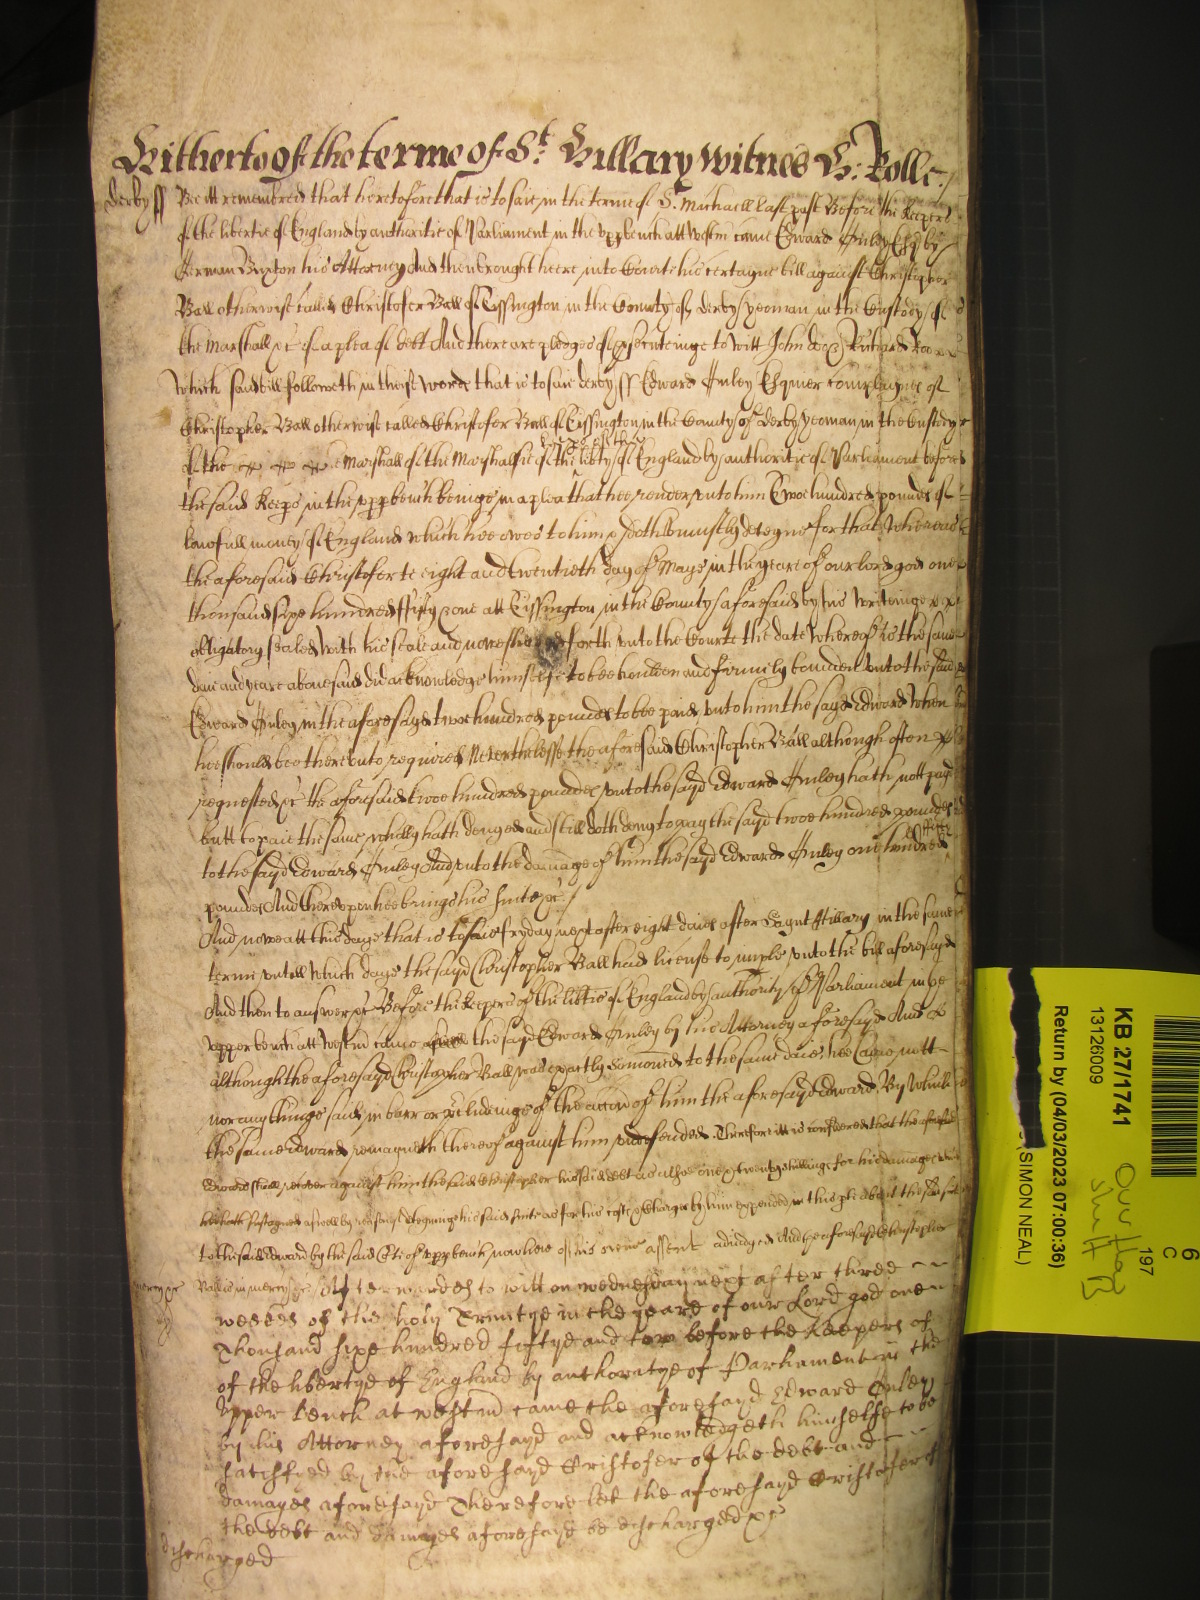 Hitherto of the terme of St. Hillary Witnes H: Rolle./
derby ss Bee itt remembred that heretofore that is to saie in the terme of S. Michaell last past Before the Keepers
of the libertie of England by authoritie of Parliament in the vpp bench att Westm came Edward Onley Esq by
Herman his Attorney And then brought heere into Court his certayne bill against Christopher
Ball otherwise called Christofer Ball of Tissington in the County of derby yeoman in the Custody of
the Marshall &c of a plea of debt And there are pledges of psecuteinge to witt John doe & Richard Roe
Which said bill followeth in theise words that is to saie derby ss Edward Onley Esquier complaynes of
Christopher Ball otherwise called Christofer Ball of Tissington in the County of Derby yeoman in the Custody
of the Marshall of the Marshalsie of the libty of England by authoritie of Parliament before
the said Keeps in the vpp bench beinge in a plea that hee render vnto him Twoe hundred pounds of
lawfull money of England which hee owes to him & doth vniustly deteyne for that Whereas
the aforesaid Christofer te eight and twentieth day of Maye in the yeare of our lord god one
thousand sixe hundred ffifty & one att Tissington in the County aforesaid by his writeinge
obligatory sealed with his seale and nowe shewed forth vnto the Courte the date whereof is the same
daie and yeare abouesaid did acknowledge himselfe to bee houlden and firmely bounden vnto the said
Edward Onley in the aforesayd twoe hundred poundes to bee paid vnto him the sayd Edward When
hee should bee therevnto required Neverthelesse the aforesaid Christopher Ball although often
requested &c the aforesaid twoe hundred poundes vnto the sayd Edward Onley hath nott payd
butt to paie the same wholly hath denyed and still doth deny to pay the sayd twoe hundred poundes
to the sayd Edward Onley And vnto the damage of him the sayd Edward Onley one hundred
poundes And therevpon hee brings his suite &c /
And nowe att this daye that is to saie fryday next after eight daies after Saynt Hillary in the same
terme vntill which daye the sayd Christopher Ball had license to imple vnto the bill aforesayd
And then to answer &c Before the Keepers of the libtie of England by authority of Parliament in ye
vpper bench att Westm came the sayd Edward Onley by his Attorney aforesayd And
although the aforesayd Christopher Ball was exactly somoned to the same daie hee came nott
nor any thinge said in barr or pcludeinge of the accon of him the aforesayd Edward By which
the same Edward remayneth thereof against him vndefended Therefore itt is considered that the aforesaid
Edward shall recover against him the said Christopher his said debt as alsoe one & twenty shillings for his damages which
hee hath sustayned aswell by reason of deteyninge his said suite as for his costs & charges by him expended in this
to the said Edward by the said Cte of vpp bench now here of his owne assent adiudged And ye aforesaid Christopher
mercy &c Ball is in mercy &c Afterwardes to witt on wednesday next after three
weekes of the holy Trinitye in the yeare of our Lord god one
thousand sixe hundred fiftye and two before the Keepers of
of the libertye of England by authoratye of Parliament in the
Vpper bench at westm came the aforesayd Edward Onley
by his Attorney aforesayd and acknowledgeth himselfe to be
satisfyed by the aforesayd Cristofer of the debt and
damages aforesayd Therefore let the aforesayd Cristofer of
the debt and damages aforesayd be discharged &c
discharged
KB 27/1741
13126009
Return by (04/03/2023 07:00:36)
(SIMON NEAL)
6
C
197